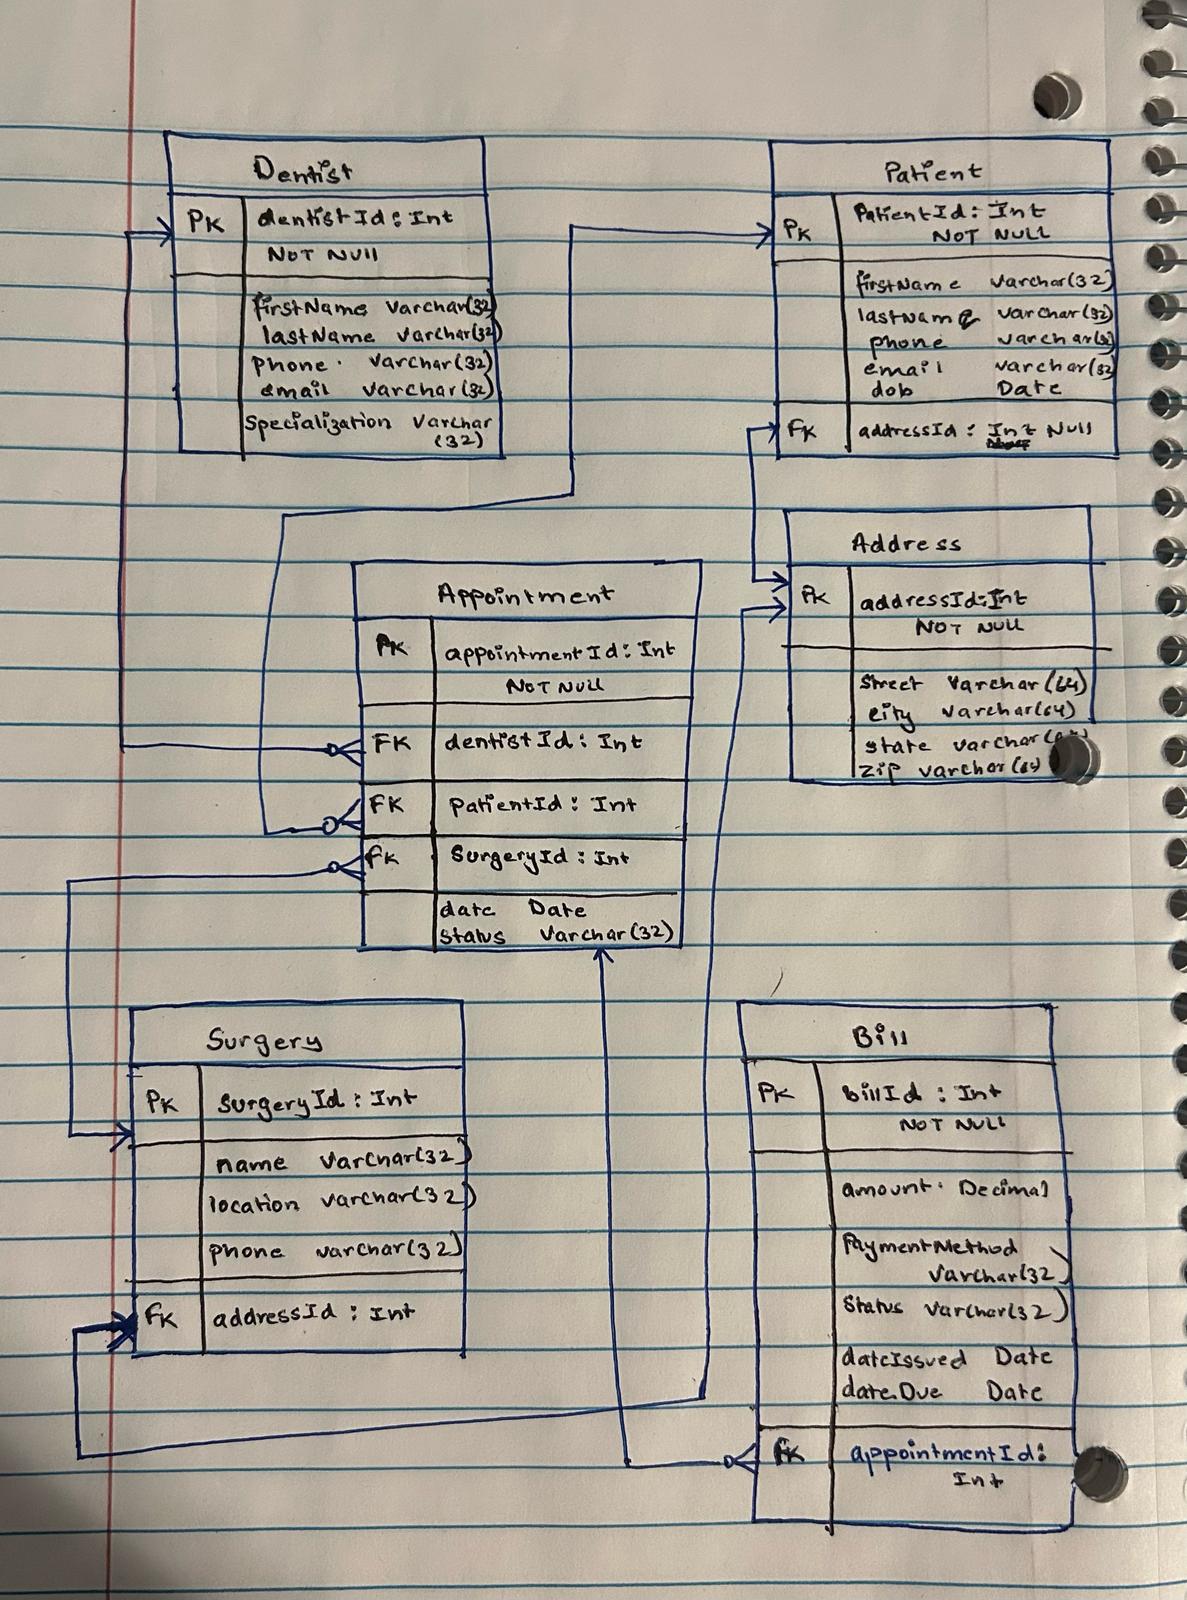 Dentist
PK dentistId: Int
NOT NUll
firstName varchar(32)
lastName varchar(32)
phone varchar(32)
email varchar(32)
Specialization Varchar
(32)
Patient
PK PatientId: Int
NOT NULL
firstName varchar(32)
lastName varchar(32)
phone varchar(32)
email varchar(32)
dob Date
FK addressId: Int NUll
Address
PK addressId:Int
NOT NULL
Street Varchar(64)
city varchar(64)
state varchar
zip varchar(64)
Appointment
PK appointmentId: Int
NOT NULL
FK dentistId: Int
FK patientId: Int
FK SurgeryId: Int
date Date
Status Varchar(32)
Surgery
PK SurgeryId: Int
name varchar(32)
location varchar(32)
phone varchar(32)
FK addressId: Int
Bill
PK billId: Int
NOT NULL
amount. Decimal
PaymentMethod
varchar(32)
Status varchar(32)
dateIssued Date
dateDue Date
FK appointmentId:
Int